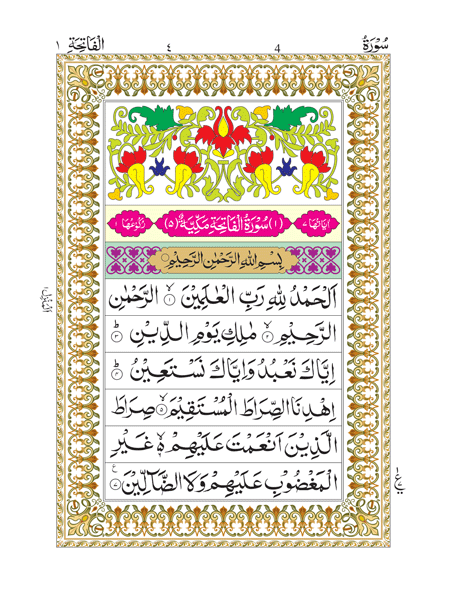 سُوْرَةُ 4 ٤ الْفَاتِحَةِ ١
اٰيَاتُهَا ٧ (١) سُوْرَةُ الْفَاتِحَةِ مَكِّيَّةٌ (٥) رُكُوْعُهَا ١
بِسْمِ اللهِ الرَّحْمٰنِ الرَّحِيْمِ
اَلْحَمْدُ لِلّٰهِ رَبِّ الْعٰلَمِيْنَ ۙ﴿١﴾ الرَّحْمٰنِ
الرَّحِيْمِ ۙ﴿٢﴾ مٰلِكِ يَوْمِ الدِّيْنِ ؕ﴿٣﴾
اِيَّاكَ نَعْبُدُ وَاِيَّاكَ نَسْتَعِيْنُ ؕ﴿٤﴾
اِهْدِنَا الصِّرَاطَ الْمُسْتَقِيْمَ ۙ﴿٥﴾ صِرَاطَ
الَّذِيْنَ اَنْعَمْتَ عَلَيْهِمْ ۙ۬ غَيْرِ
الْمَغْضُوْبِ عَلَيْهِمْ وَلَا الضَّآلِّيْنَ ﴿٧﴾